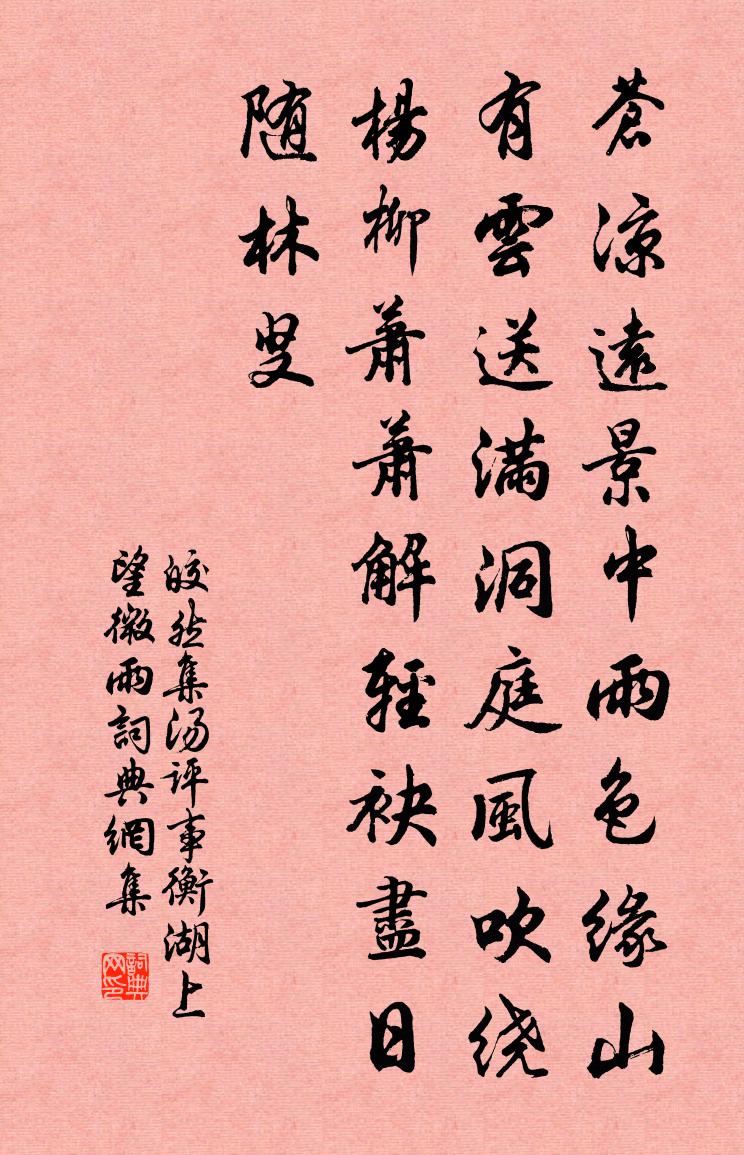 蒼凉遠景中雨色緣山
有雲送滿洞庭風吹绕
楊柳蕭蕭解輕袂盡日
随林叟
皎然集汤评事衡湖上
望微雨詞典網集
詞典网印